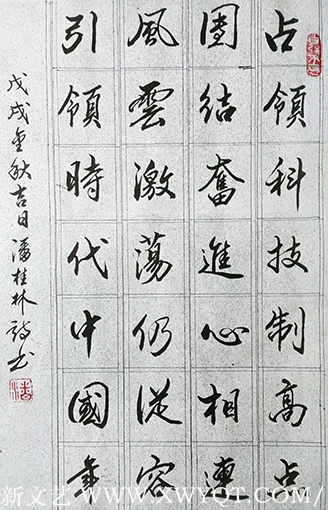 占領科技制高点
團结奮進心相連
風雲激蕩仍從容
引領時代中國年
戊戌金秋吉日潘桂林詩书
新文艺 WWW.XWYQT.COM/